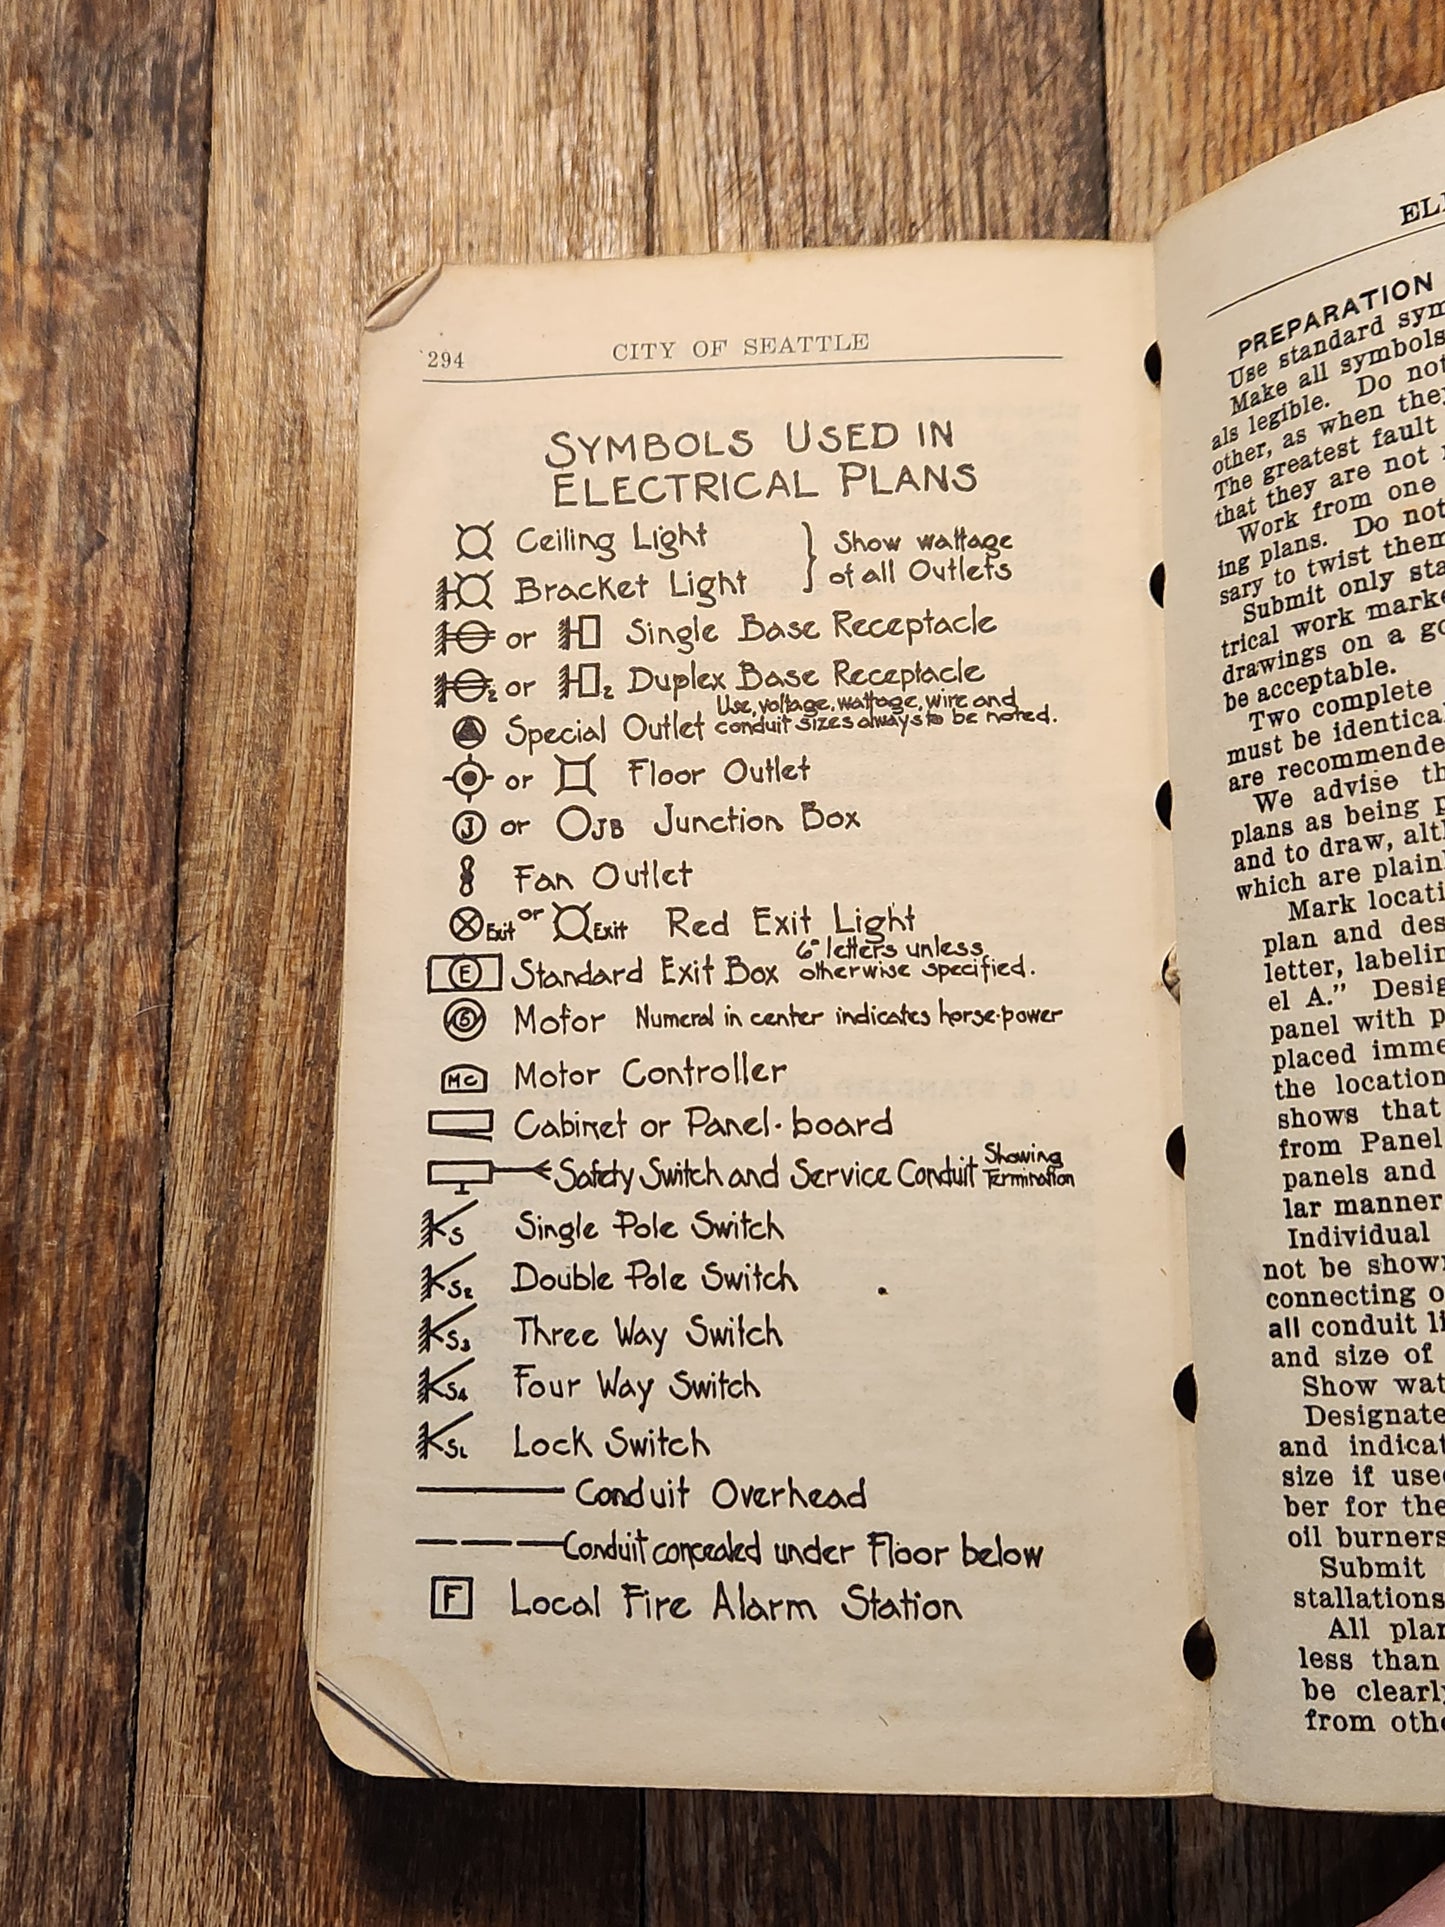 294
CITY OF SEATTLE
SYMBOLS USED IN
ELECTRICAL PLANS
Ceiling Light
Show wattage
of all Outlets
Bracket Light
or Single Base Receptacle
2 or 2 Duplex Base Receptacle
Special Outlet Use, voltage, wattage, wire and
conduit sizes always to be noted.
or Floor Outlet
J or JB Junction Box
Fan Outlet
Exit or Exit Red Exit Light
E Standard Exit Box 6" letters unless
otherwise specified.
6 Motor Numeral in center indicates horse-power
MC Motor Controller
Cabinet or Panel-board
Safety Switch and Service Conduit Showing
Termination
S Single Pole Switch
S2 Double Pole Switch
S3 Three Way Switch
S4 Four Way Switch
SL Lock Switch
Conduit Overhead
Conduit concealed under Floor below
F Local Fire Alarm Station
PREPARATION
Use standard
Make all symbols
als legible. Do not
other, as when
The greatest fault
that they are not
Work from one
ing plans. Do not
sary to twist them
Submit only
trical work
drawings on a
be acceptable.
Two complete
must be
are
We advise
plans as being
and to draw,
which are
Mark
plan and
letter,
el A."
panel with
placed
the location
shows that
from Panel
panels and
lar manner
Individual
not be
connecting
all conduit
and size of
Show
Designate
and
size if
ber for the
oil burners
Submit
stallations
All
less than
be
from